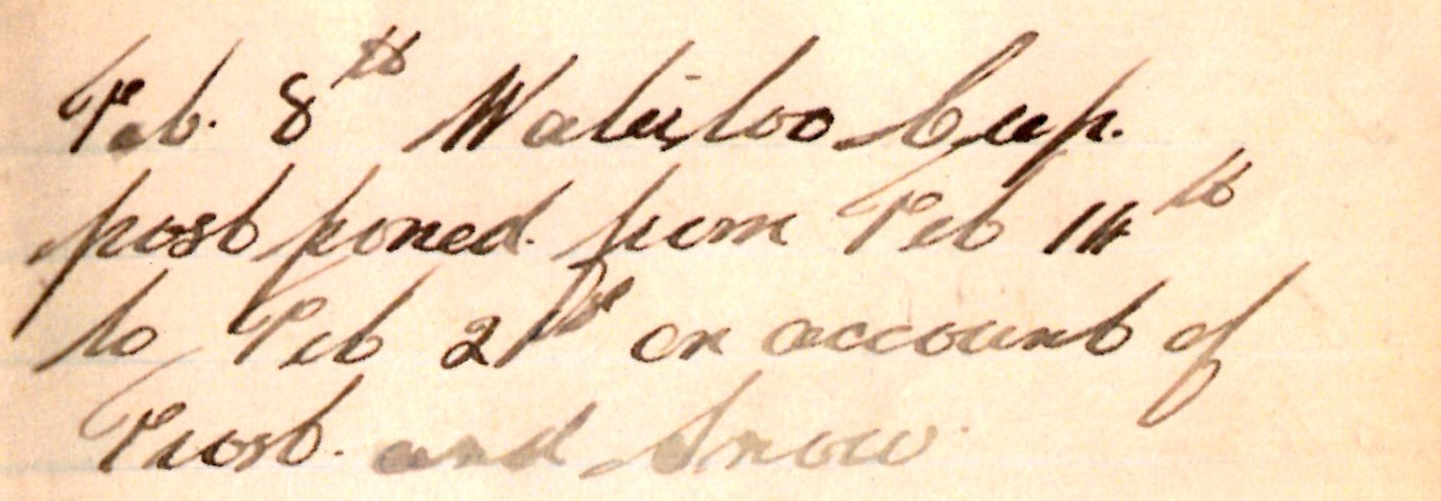 Feb. 8th Waterloo Cup.
postponed from Feb 14th
to Feb 21st on account of
Frost. and Snow